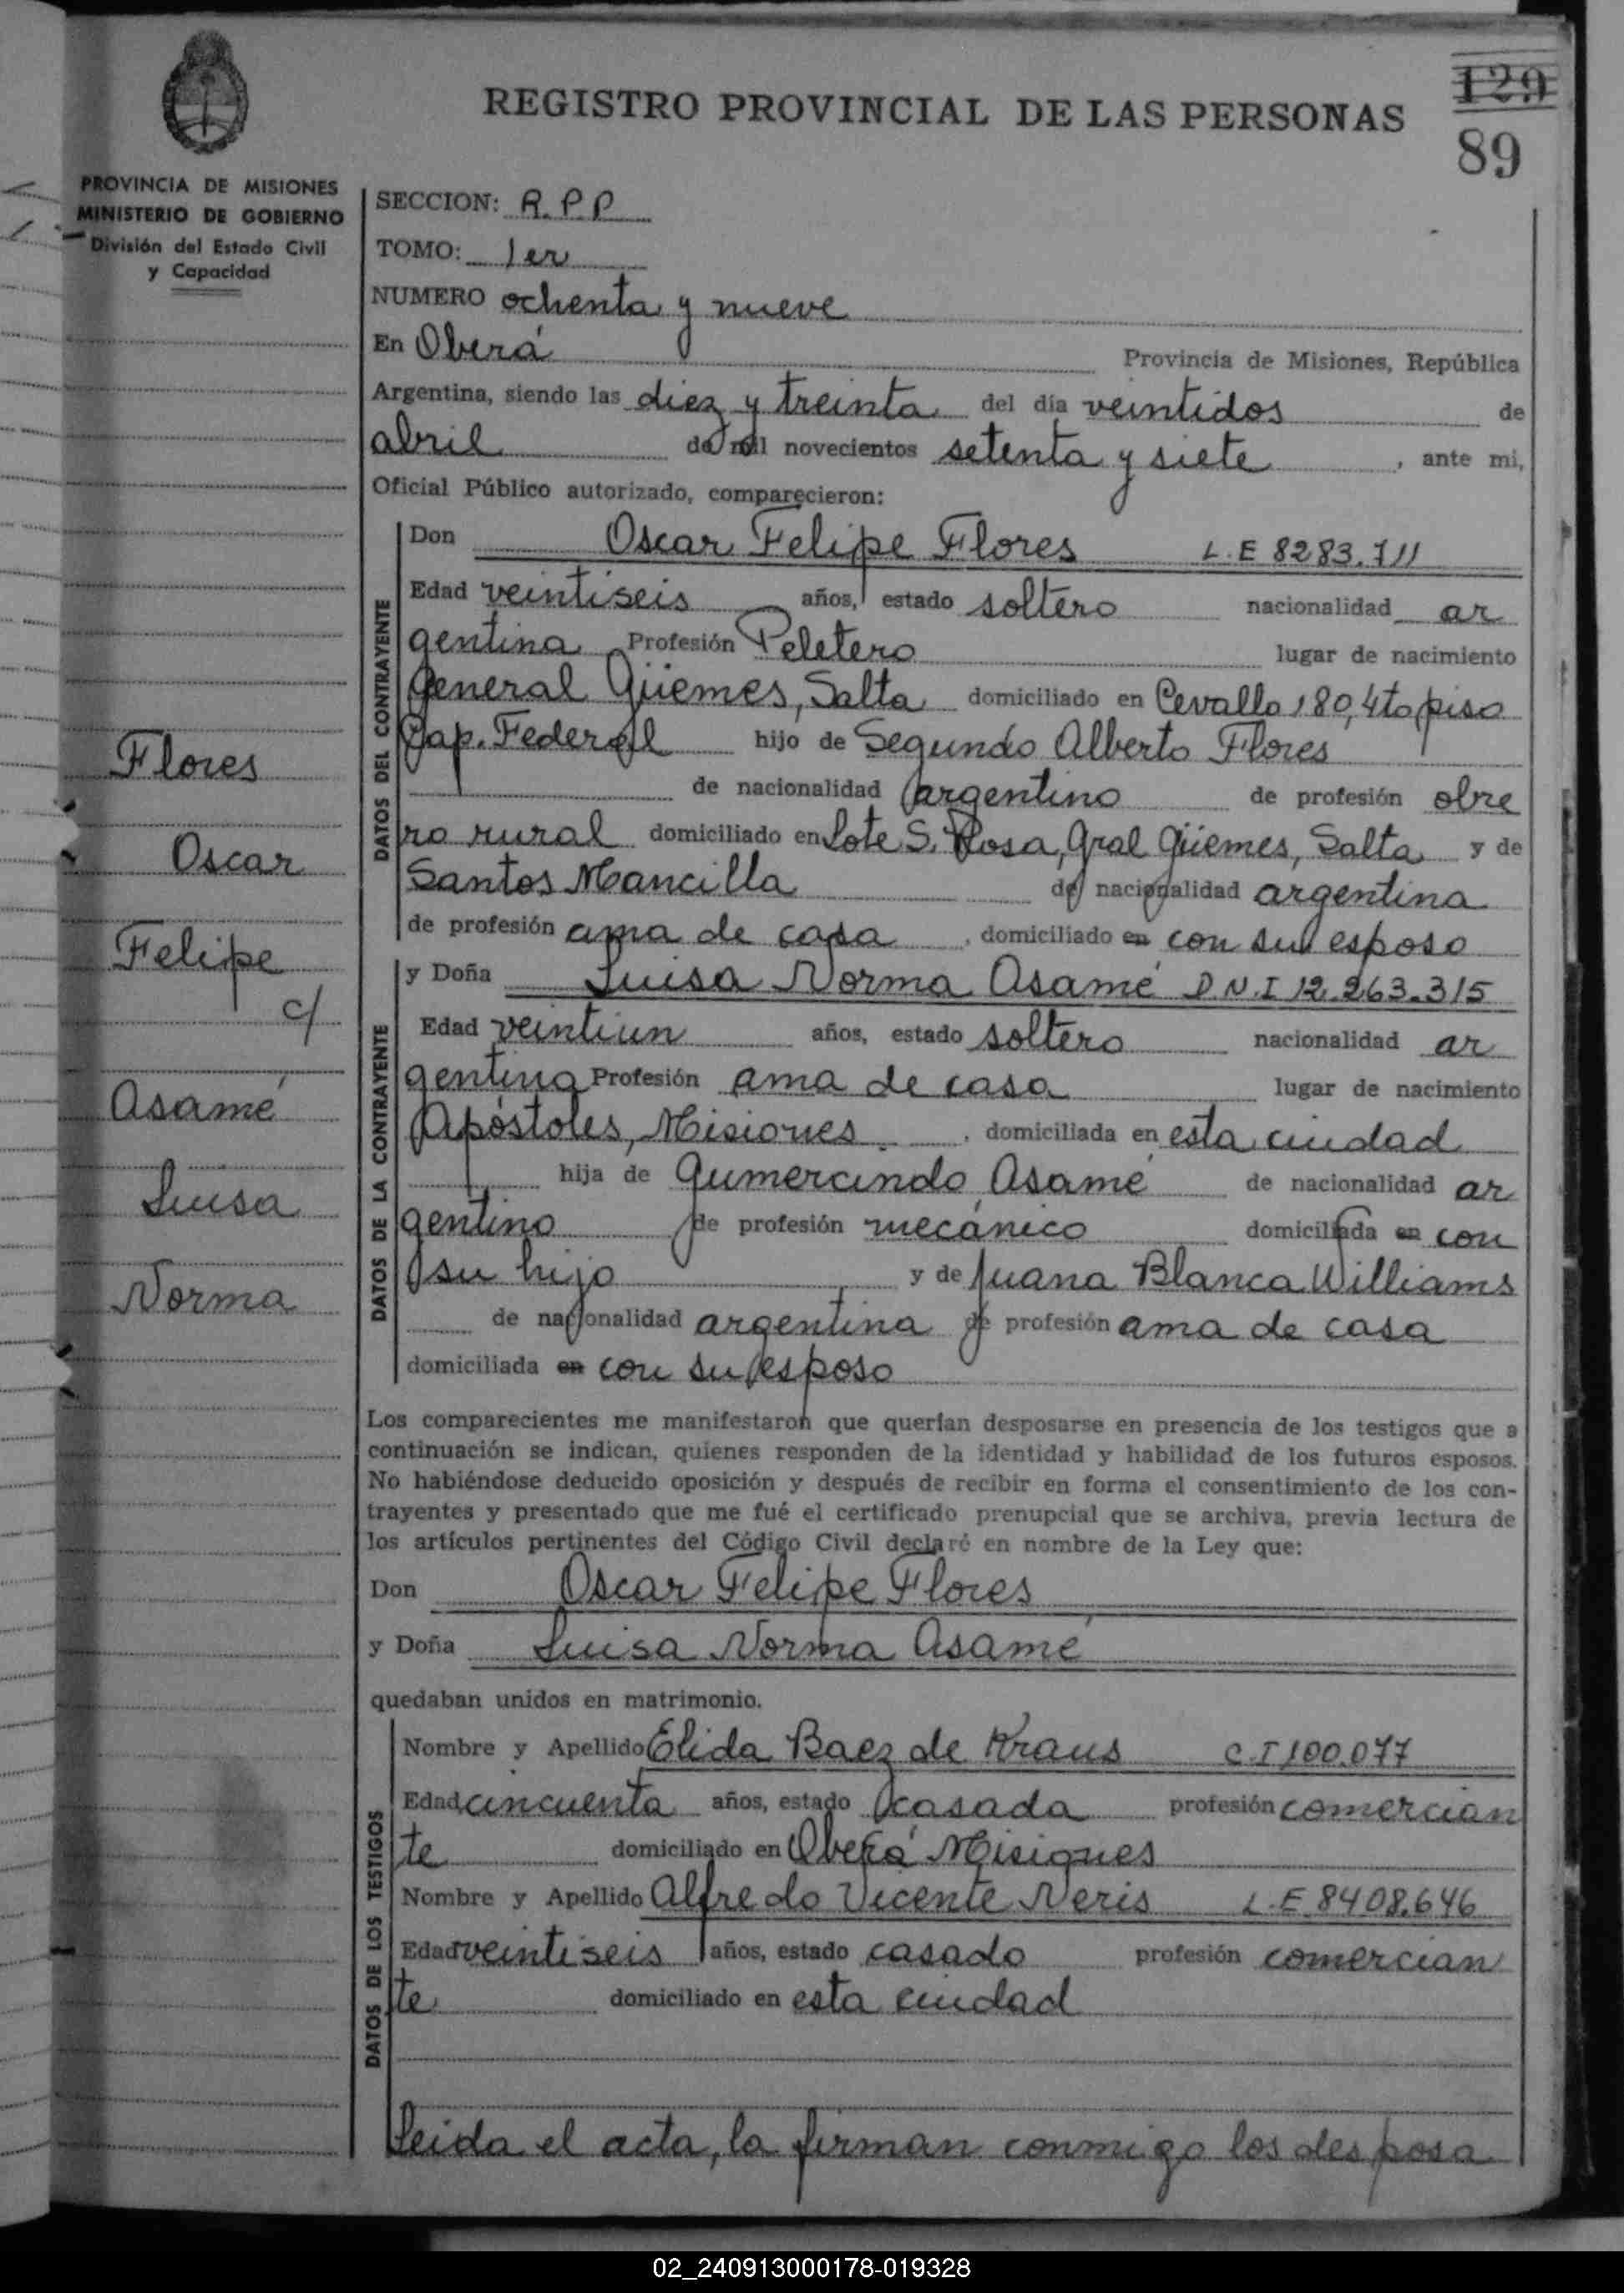 REGISTRO PROVINCIAL DE LAS PERSONAS
129
89
PROVINCIA DE MISIONES
MINISTERIO DE GOBIERNO
División del Estado Civil
y Capacidad
SECCION: R.P.P
TOMO: 1er
NUMERO ochenta y nueve
En Oberá Provincia de Misiones, República
Argentina, siendo las diez y treinta del día veintidos de
abril de mil novecientos setenta y siete, ante mi,
Oficial Público autorizado, comparecieron:
DATOS DEL CONTRAYENTE
Don Oscar Felipe Flores L.E 8283.711
Edad veintiseis años, estado soltero nacionalidad ar
gentina Profesión Peletero lugar de nacimiento
General Güemes, Salta domiciliado en Cevallo 180, 4to piso
Cap. Federal hijo de Segundo Alberto Flores
de nacionalidad argentino de profesión obre
ro rural domiciliado en Lote S. Rosa, Gral Güemes, Salta y de
Santos Mancilla de nacionalidad argentina
de profesión ama de casa, domiciliado en con su esposo
DATOS DE LA CONTRAYENTE
y Doña Luisa Norma Asamé D.N.I 12.263.315
Edad veintiun años, estado soltero nacionalidad ar
gentina Profesión ama de casa lugar de nacimiento
Apóstoles, Misiones, domiciliada en esta ciudad
hija de Gumercindo Asamé de nacionalidad ar
gentino de profesión mecánico domiciliada en con
su hijo y de Juana Blanca Williams
de nacionalidad argentina de profesión ama de casa
domiciliada en con su esposo
Flores
Oscar
Felipe
c/
Asamé
Luisa
Norma
Los comparecientes me manifestaron que querían desposarse en presencia de los testigos que a
continuación se indican, quienes responden de la identidad y habilidad de los futuros esposos.
No habiéndose deducido oposición y después de recibir en forma el consentimiento de los con-
trayentes y presentado que me fué el certificado prenupcial que se archiva, previa lectura de
los artículos pertinentes del Código Civil declaré en nombre de la Ley que:
Don Oscar Felipe Flores
y Doña Luisa Norma Asamé
quedaban unidos en matrimonio.
DATOS DE LOS TESTIGOS
Nombre y Apellido Elida Baez de Kraus C.I 100.077
Edad cincuenta años, estado casada profesión comercian
te domiciliado en Oberá Misiones
Nombre y Apellido Alfredo Vicente Neris L.E 8408.646
Edad veintiseis años, estado casado profesión comercian
te domiciliado en esta ciudad
Leida el acta, la firman conmigo los desposa
02_240913000178-019328